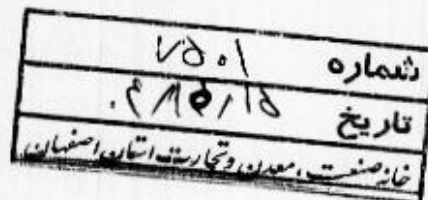 شماره ۷۵۰۱
تاریخ
خانه صنعت، معدن و تجارت استان اصفهان